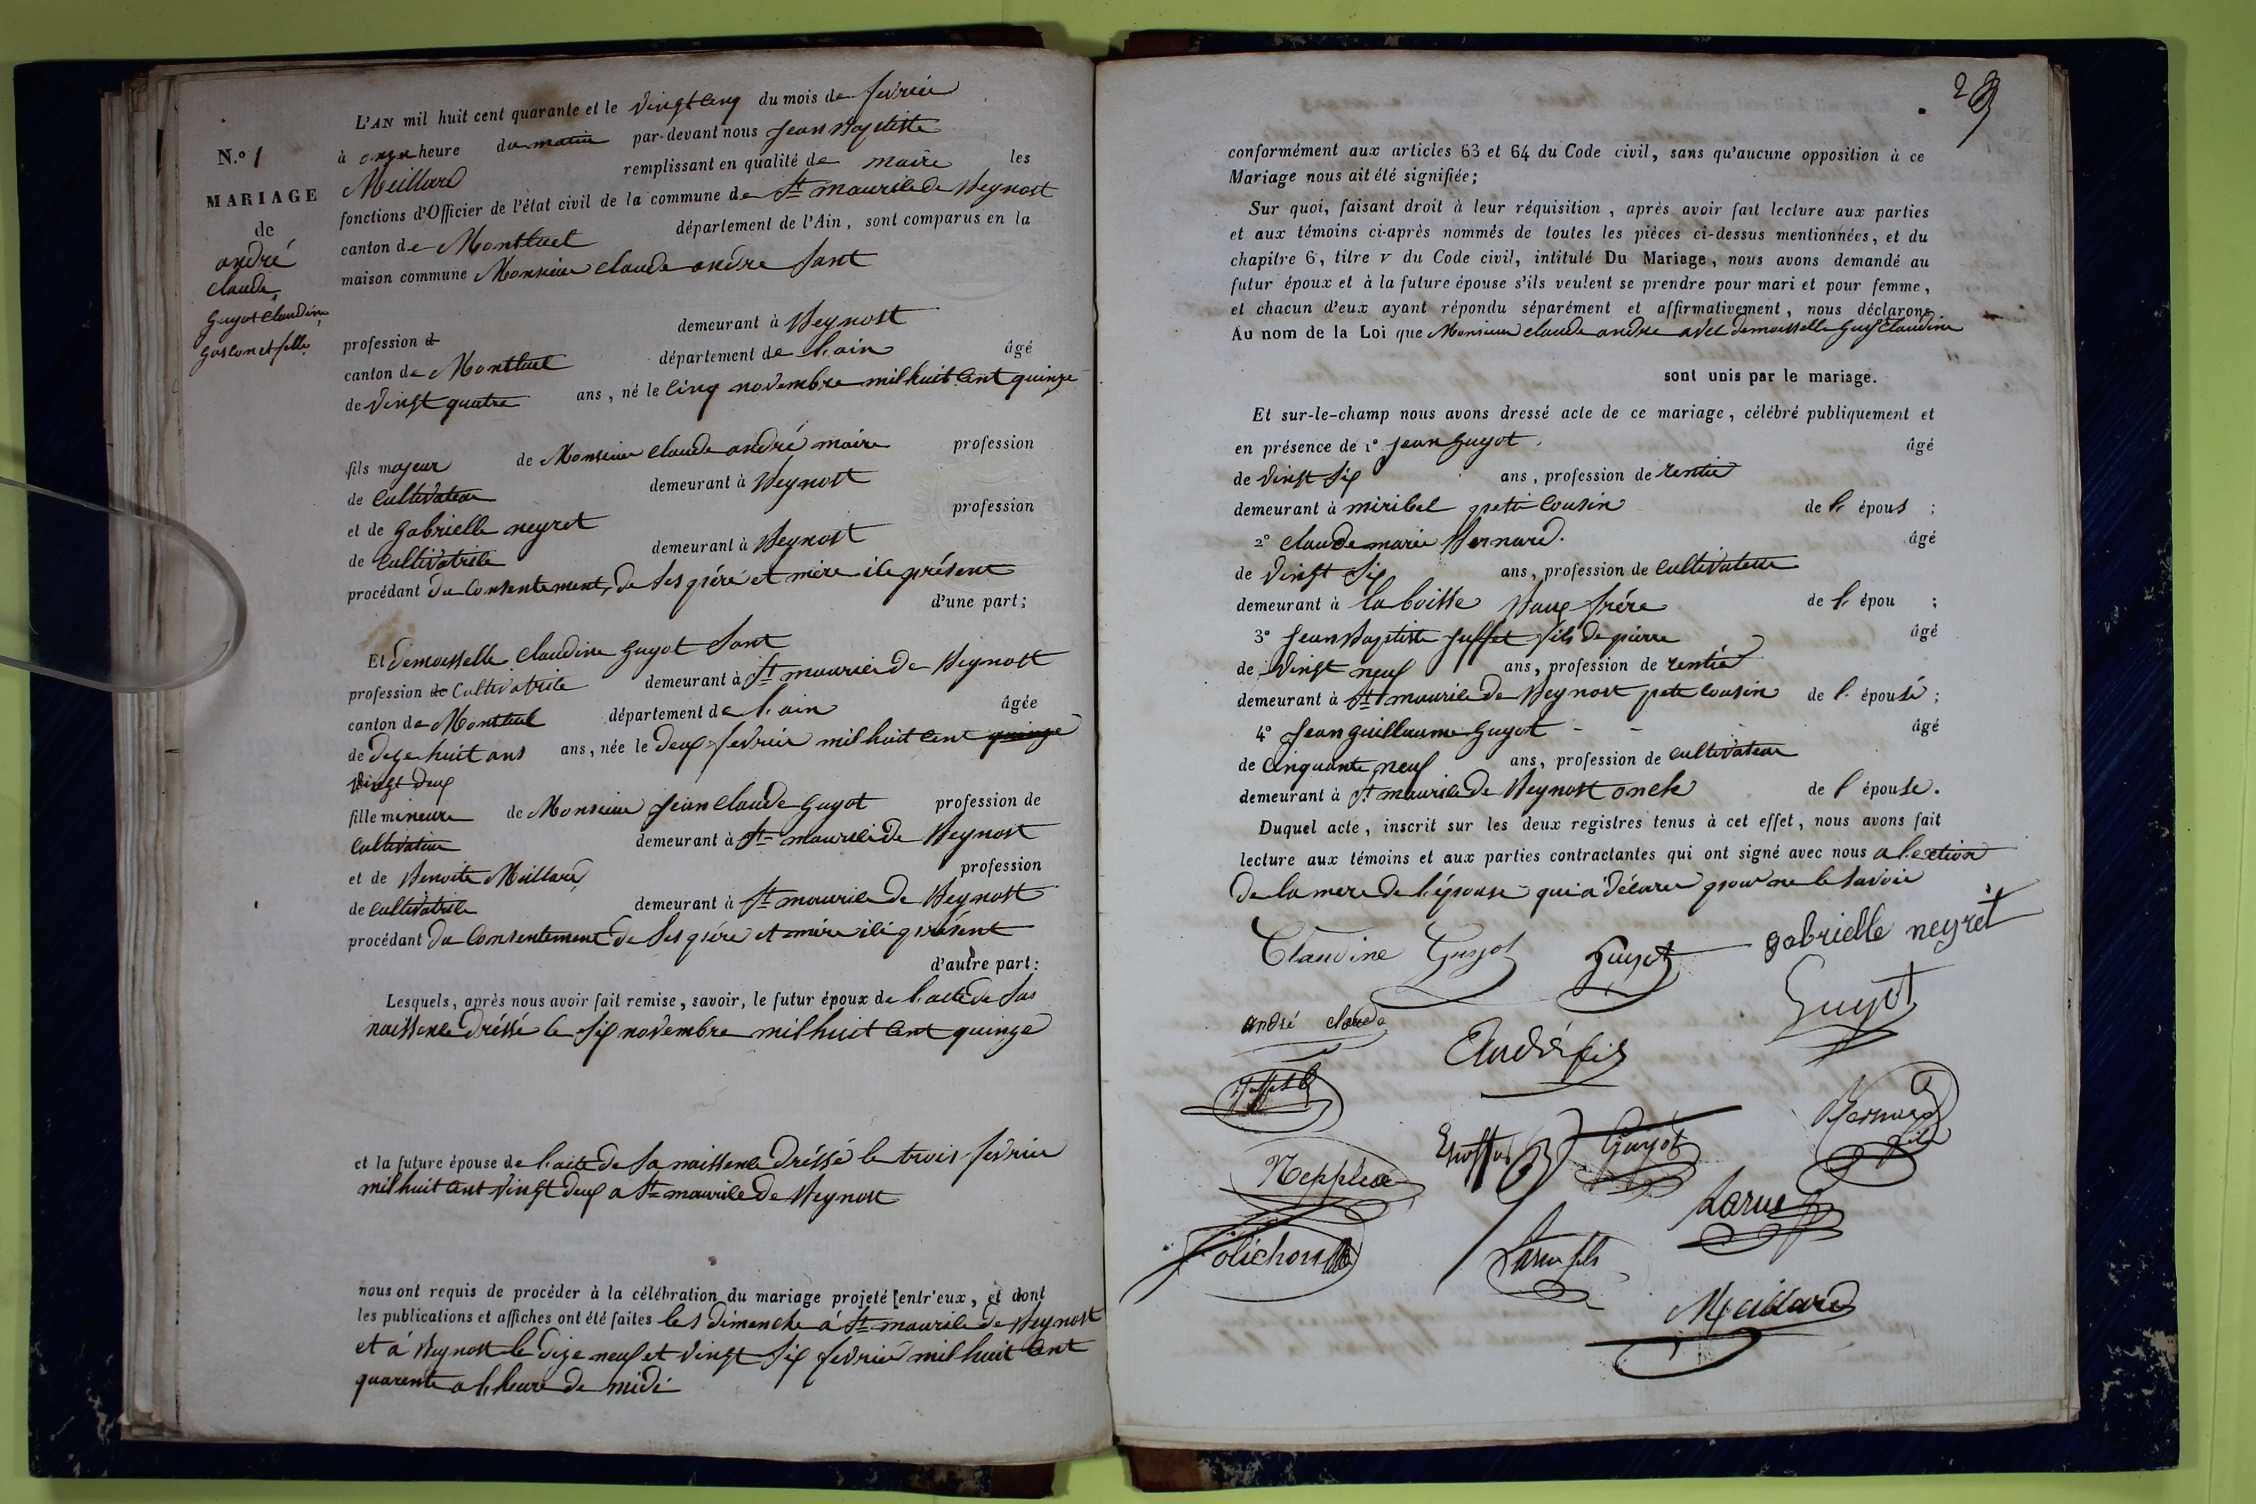 N.º 1
MARIAGE
de
andré
claude
guyot claudine
garson et fille
L'AN mil huit cent quarante et le vingt cinq du mois de fevrier
à onze heure du matin par-devant nous Jean Baptiste
Meillard remplissant en qualité de maire les
fonctions d'Officier de l'état civil de la commune de St maurice de Beynost
canton de Montluel département de l'Ain, sont comparus en la
maison commune Monsieur claude andre Sant
profession d demeurant à Beynost
canton de Montluel département de l'ain âgé
de vingt quatre ans, né le cinq novembre mil huit cent quinze
fils majeur de Monsieur claude andré maire profession
de cultivateur demeurant à Beynost
et de gabrielle neyret profession
de cultivatrice demeurant à Beynost
procédant du consentement de ses péré et mère ici présent
d'une part;
Et demoiselle claudine guyot Sant
profession de cultivatrice demeurant à St maurice de Beynost
canton de Montluel département de l'ain âgée
de dize huit ans ans, née le deux fevrier mil huit cent quinze
vingt deux
fille mineure de Monsieur jean claude guyot profession de
cultivateur demeurant à St maurice de Beynost
et de Benoite Meillard profession
de cultivatrice demeurant à St maurice de Beynost
procédant du consentement de ses péré et mère ici présent
d'autre part:
Lesquels, après nous avoir fait remise, savoir, le futur époux de l'acte de Sas
naissence dréssé le six novembre mil huit cent quinze
et la future épouse de l'acte de sa naissence dréssé le trois fevrier
mil huit cent vingt deux a St maurice de Beynost
nous ont requis de procéder à la célébration du mariage projeté entr'eux, et dont
les publications et affiches ont été faites les dimenche á St maurice de Beynost
et á Beynost le dize neuf et vingt six fevrier mil huit cent
quarente a l'heure de midi
conformément aux articles 63 et 64 du Code civil, sans qu'aucune opposition à ce
Mariage nous ait été signifiée;
Sur quoi, faisant droit à leur réquisition, après avoir fait lecture aux parties
et aux témoins ci-après nommés de toutes les pièces ci-dessus mentionnées, et du
chapitre 6, titre v du Code civil, intitulé Du Mariage, nous avons demandé au
futur époux et à la future épouse s'ils veulent se prendre pour mari et pour femme,
et chacun d'eux ayant répondu séparément et affirmativement, nous déclarons
Au nom de la Loi que Monsieur claude andre avec demoiselle guy claudine
sont unis par le mariage.
Et sur-le-champ nous avons dressé acte de ce mariage, célébré publiquement et
en présence de 1º jean guyot âgé
de vingt six ans, profession de rentié
demeurant à miribel petit cousin de l' épous ;
2º claude marie Bernard. âgé
de vingt six ans, profession de cultivateur
demeurant à la boisse Baux frére de l' épou ;
3º Jean Baptiste juffet fils de pierre âgé
de vingt neuf ans, profession de rentié
demeurant à St maurice de Beynost petit cousin de l' épousé ;
4º Jean guillaume guyot - - âgé
de cinquante neuf ans, profession de cultivateur
demeurant à St maurice de Beynost oncle de l' épouse.
Duquel acte, inscrit sur les deux registres tenus à cet effet, nous avons fait
lecture aux témoins et aux parties contractantes qui ont signé avec nous a l'exction
de la mere de l'épouse qui a déclarer pour ne le savoir
Claudine Guyot Guyot gabrielle neyret
andré claude André fils Guyot
Guyot Bernard fils
Larue
Larue fils
Meillard